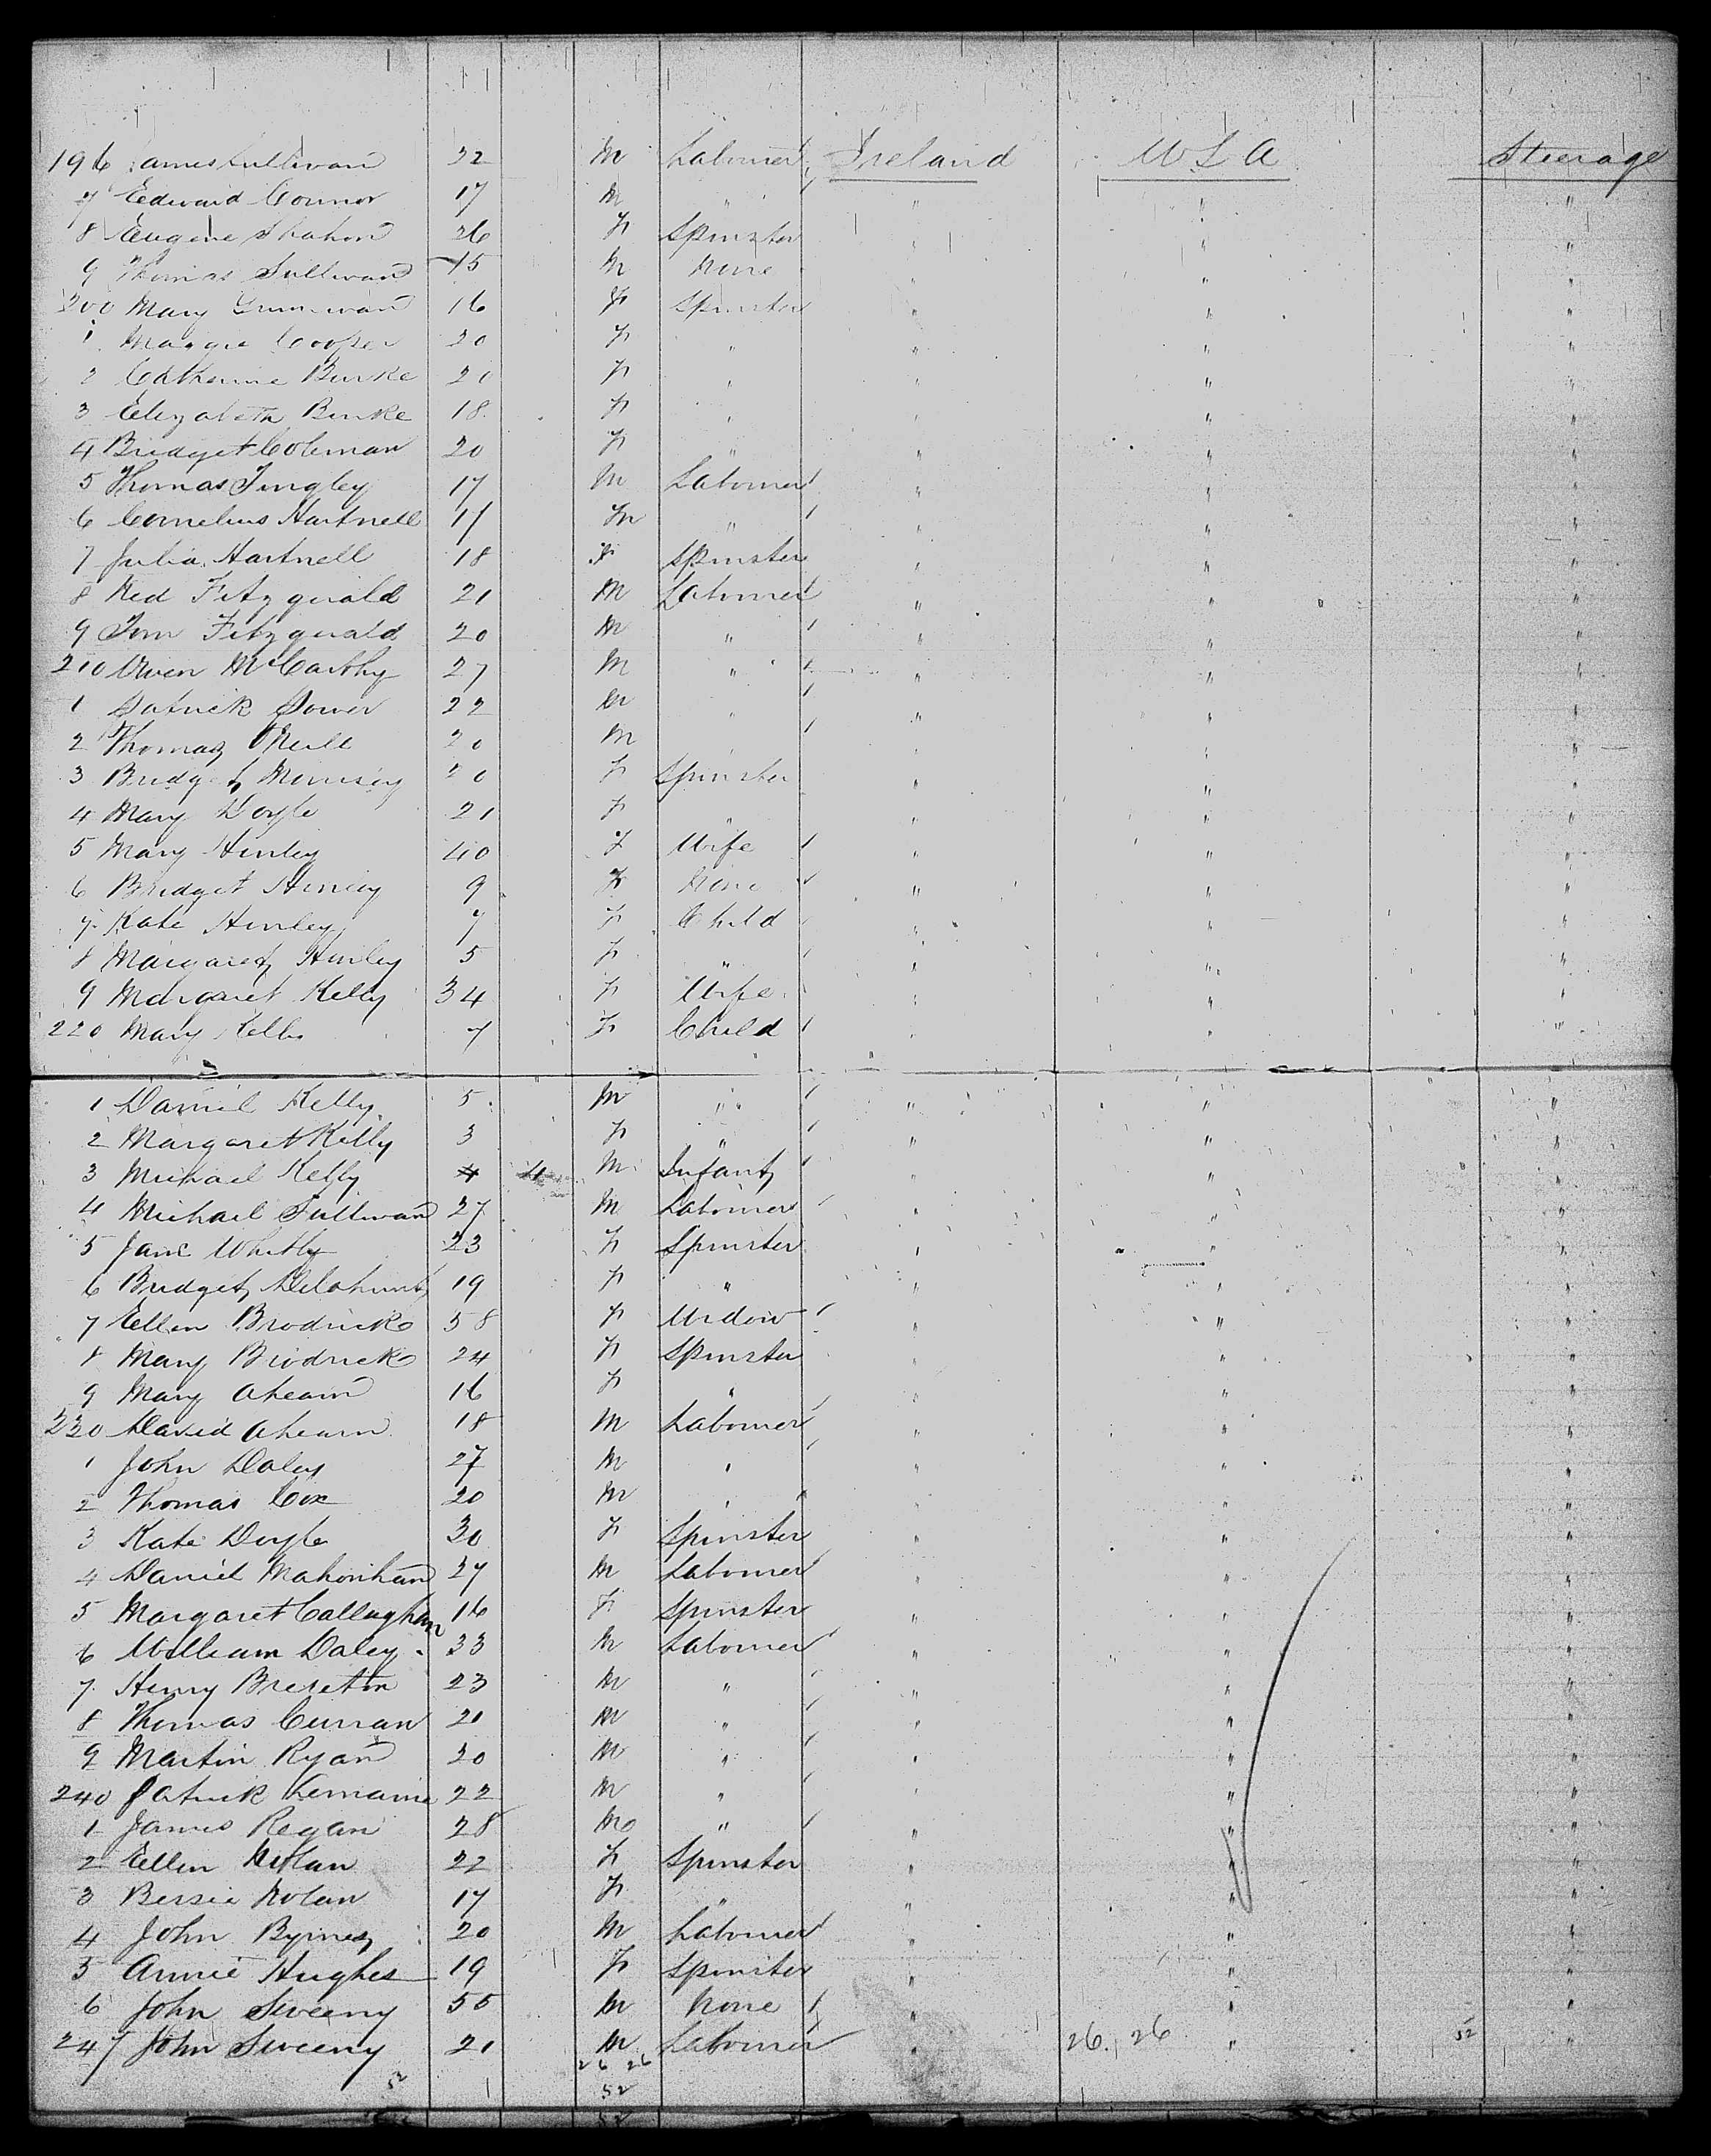 196 James Sullivan 22 M Labourer Ireland U S A Steerage
7 Edward Connor 17 M " " " "
8 Eugene 26 F Spinster " " "
9 Thomas Sullivan 15 M None " " "
200 Mary 16 F Spinster " " "
1 Maggie Cooper 20 F " " " "
2 Catherine Burke 20 F " " " "
3 Elizabeth Burke 18 F " " " "
4 Bridget Coleman 20 F " " " "
5 Thomas Tingley 17 M Labourer " " "
6 Cornelius Hartnell 17 M " " " "
7 Julia Hartnell 18 F Spinster " " "
8 Ned Fitzgerald 21 M Labourer " " "
9 Tom Fitzgerald 20 M " " " "
210 Owen McCarthy 27 M " " " "
1 Patrick Power 22 M " " " "
2 Thomas O'Neill 20 M " " " "
3 Bridget Morrisey 20 F Spinster " " "
4 Mary Doyle 21 F " " " "
5 Mary Hurley 40 F Wife " " "
6 Bridget Hurley 9 F None " " "
7 Kate Hurley 7 F Child " " "
8 Margaret Hurley 5 F " " " "
9 Margaret Kelly 34 F Wife " " "
220 Mary Kelly 7 F Child " " "
1 Daniel Kelly 5 M " " " "
2 Margaret Kelly 3 F " " " "
3 Michael Kelly 4 4 M Infant " " "
4 Michael Sullivan 27 M Labourer " " "
5 Jane Whitly 23 F Spinster " " "
6 Bridget Delahunty 19 F " " " "
7 Ellen Brodrick 58 F Widow " " "
8 Mary Brodrick 24 F Spinster " " "
9 Mary Ahearn 16 F " " " "
230 David Ahearn 18 M Labourer " " "
1 John Daley 27 M " " " "
2 Thomas Cox 20 M " " " "
3 Kate Doyle 30 F Spinster " " "
4 Daniel 27 M Labourer " " "
5 Margaret Callaghan 16 F Spinster " " "
6 William Daley 33 M Labourer " " "
7 Henry Brereton 23 M " " " "
8 Thomas Curran 21 M " " " "
9 Martin Ryan 20 M " " " "
240 Patrick 22 M " " " "
1 James Regan 28 M " " " "
2 Ellen Nolan 22 F Spinster " " "
3 Bessie Nolan 17 F " " " "
4 John Byrnes 20 M Labourer " " "
5 Annie Hughes 19 F Spinster " " "
6 John Sweeny 55 M None " " "
247 John Sweeny 21 M Labourer " 26. 26 " 52 "
26 26
52 1 52
52